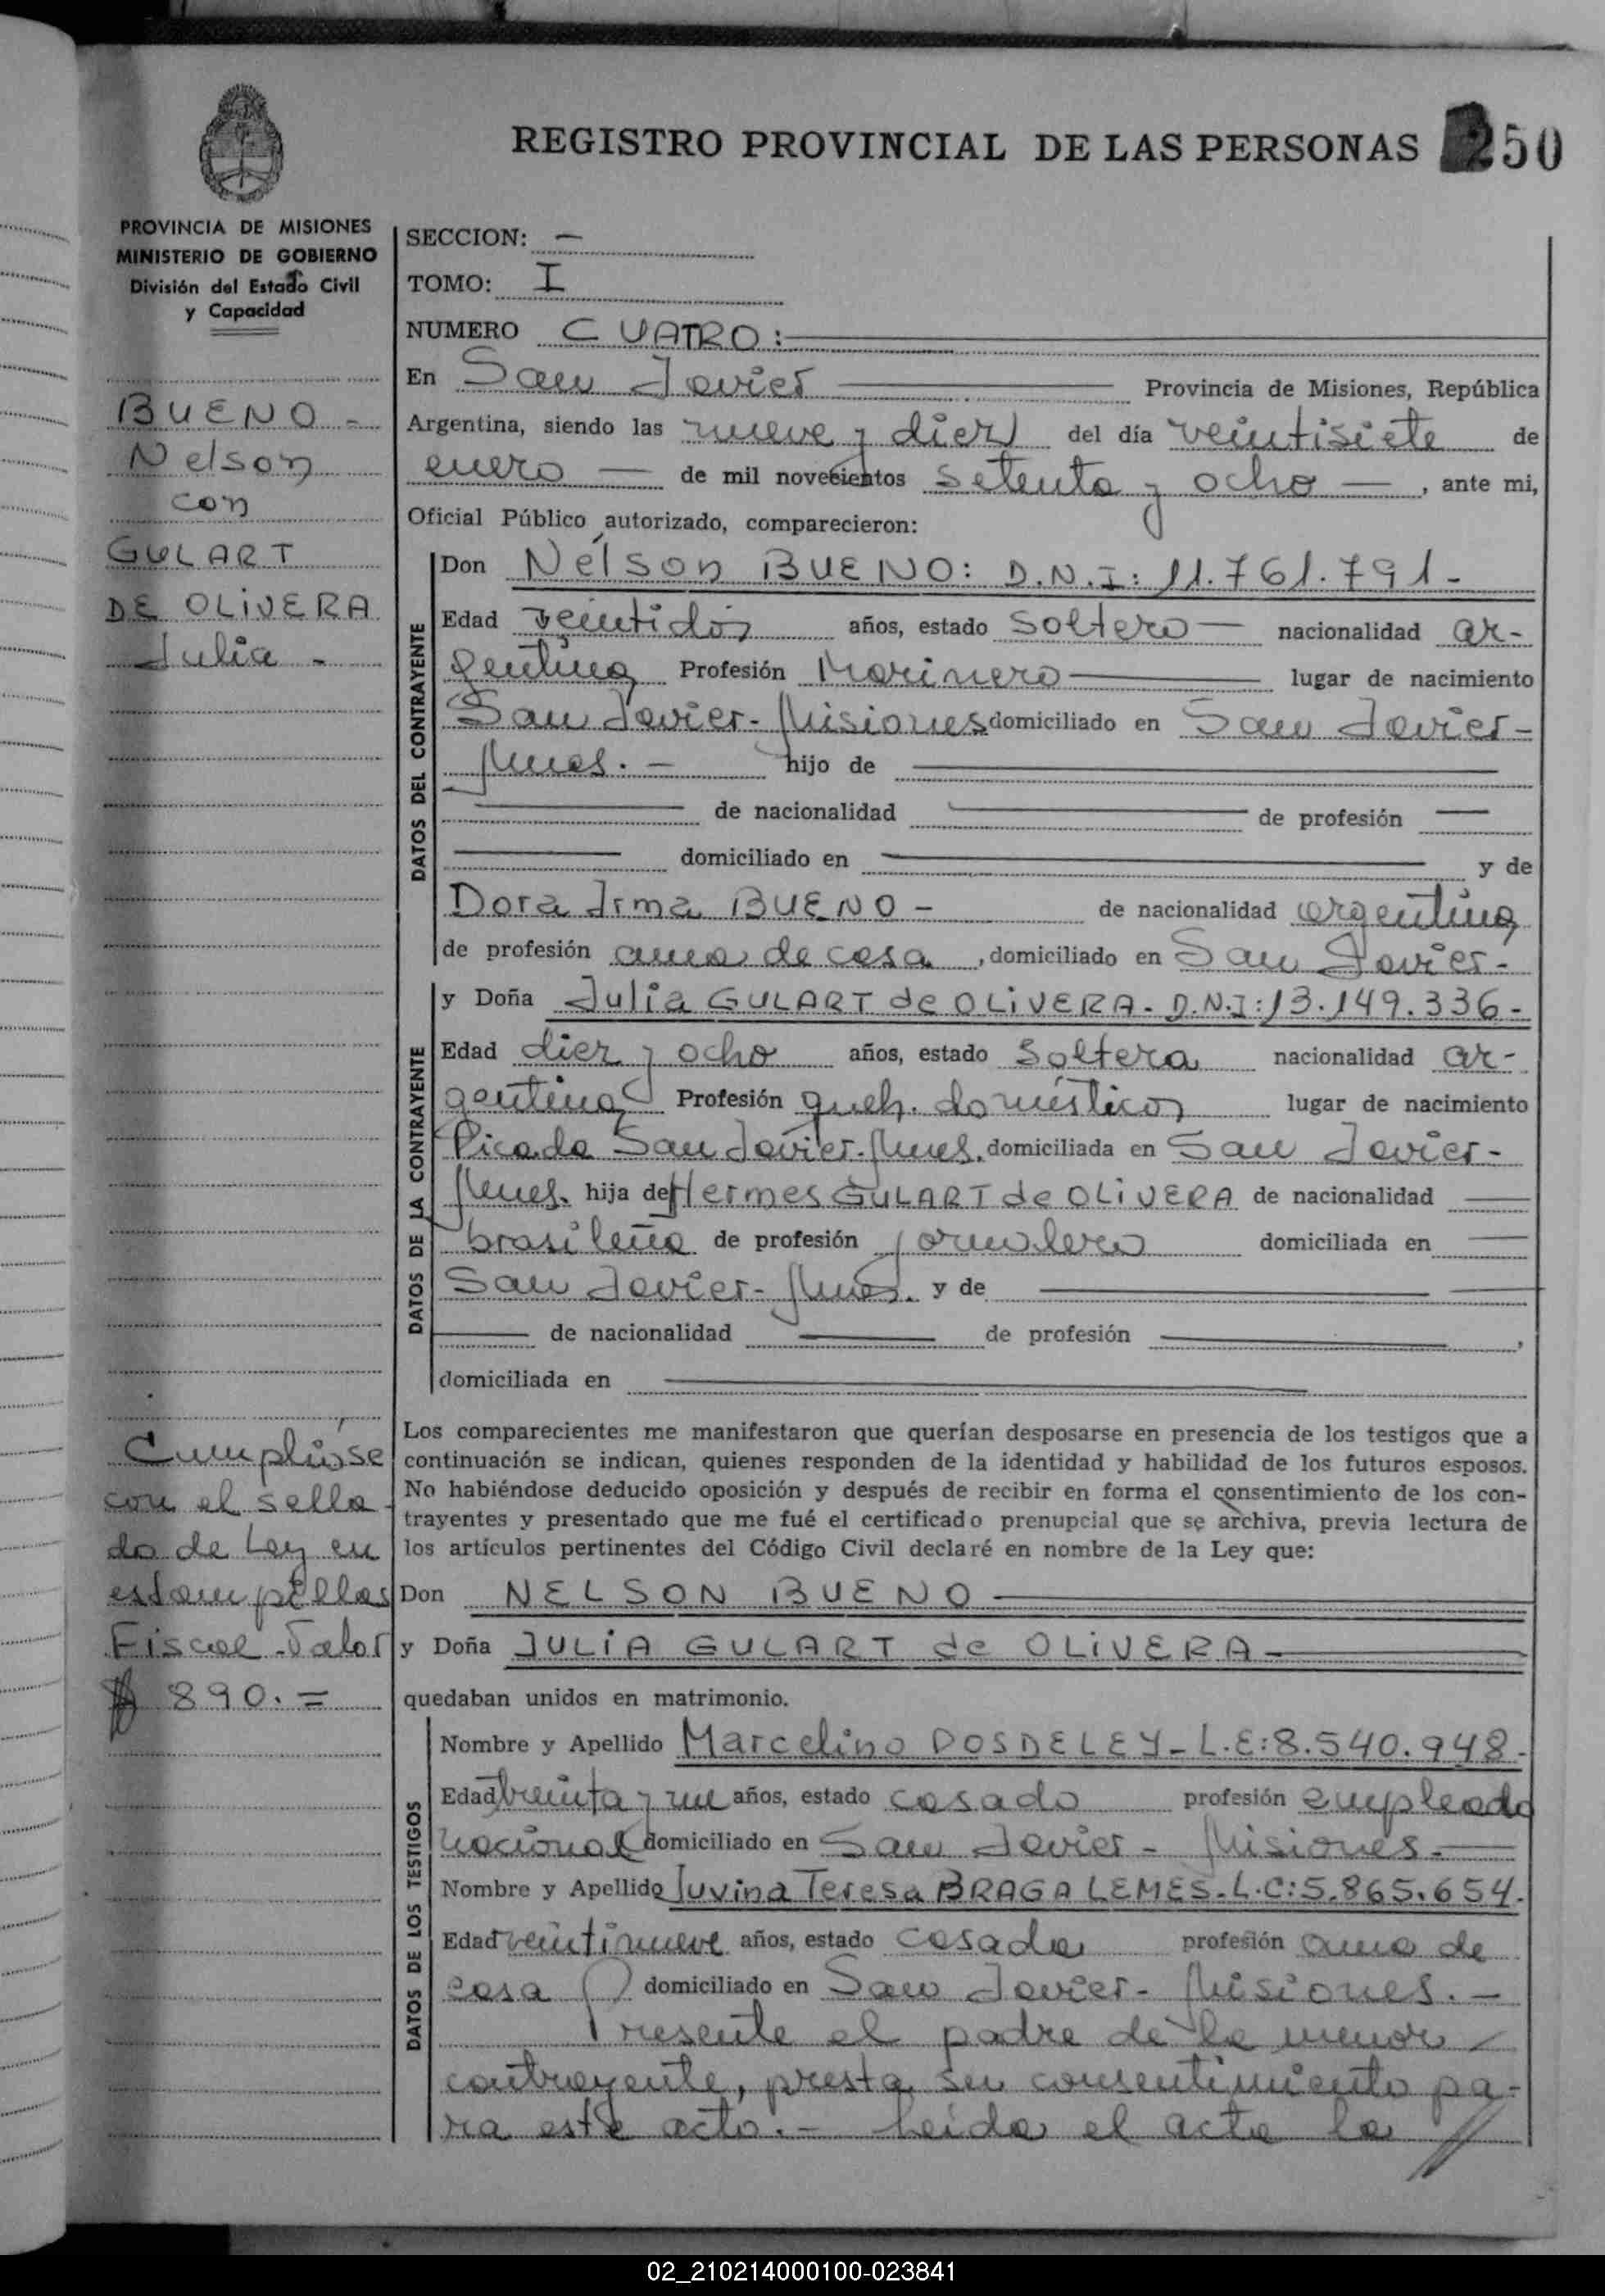 REGISTRO PROVINCIAL DE LAS PERSONAS 250
PROVINCIA DE MISIONES
MINISTERIO DE GOBIERNO
División del Estado Civil
y Capacidad
BUENO -
Nelson
con
GULART
DE OLIVERA
Julia -
Cumplióse
con el sella-
do de Ley en
estampillas
Fiscal - Valor
$ 890.=
SECCION: —
TOMO: I
NUMERO CUATRO:
En San Javier Provincia de Misiones, República
Argentina, siendo las nueve y diez del día veintisiete de
enero — de mil novecientos setenta y ocho —, ante mi,
Oficial Público autorizado, comparecieron:
DATOS DEL CONTRAYENTE
Don Nélson BUENO: D.N.I: 11.761.791-
Edad veintidós años, estado soltero — nacionalidad ar-
gentina Profesión Marinero lugar de nacimiento
San Javier- Misiones domiciliado en San Javier-
Mnes. - hijo de
de nacionalidad de profesión
domiciliado en y de
Dora Irma BUENO - de nacionalidad argentina
de profesión ama de casa, domiciliado en San Javier-
DATOS DE LA CONTRAYENTE
y Doña Julia GULART de OLIVERA- D.N.I: 13.149.336-
Edad diez y ocho años, estado soltera nacionalidad ar-
gentina Profesión queh. domésticos lugar de nacimiento
Picada San Javier-Mnes. domiciliada en San Javier-
Mnes. hija de Hermes GULART de OLIVERA de nacionalidad
brasileña de profesión jornalero domiciliada en
San Javier- Mnes. y de
de nacionalidad de profesión ,
domiciliada en
Los comparecientes me manifestaron que querían desposarse en presencia de los testigos que a
continuación se indican, quienes responden de la identidad y habilidad de los futuros esposos.
No habiéndose deducido oposición y después de recibir en forma el consentimiento de los con-
trayentes y presentado que me fué el certificado prenupcial que se archiva, previa lectura de
los artículos pertinentes del Código Civil declaré en nombre de la Ley que:
Don NELSON BUENO
y Doña JULIA GULART de OLIVERA
quedaban unidos en matrimonio.
DATOS DE LOS TESTIGOS
Nombre y Apellido Marcelino DOSDELEY- L.E:8.540.948-
Edad treinta y un años, estado casado profesión empleado
nacional domiciliado en San Javier - Misiones.
Nombre y Apellido Juvina Teresa BRAGA LEMES-L.C:5.865.654.
Edad veintinueve años, estado casada profesión ama de
casa domiciliado en San Javier- Misiones. -
Presente el padre de la menor
contrayente, presta su consentimiento pa-
ra este acto. - Leída el acta la
02_210214000100-023841